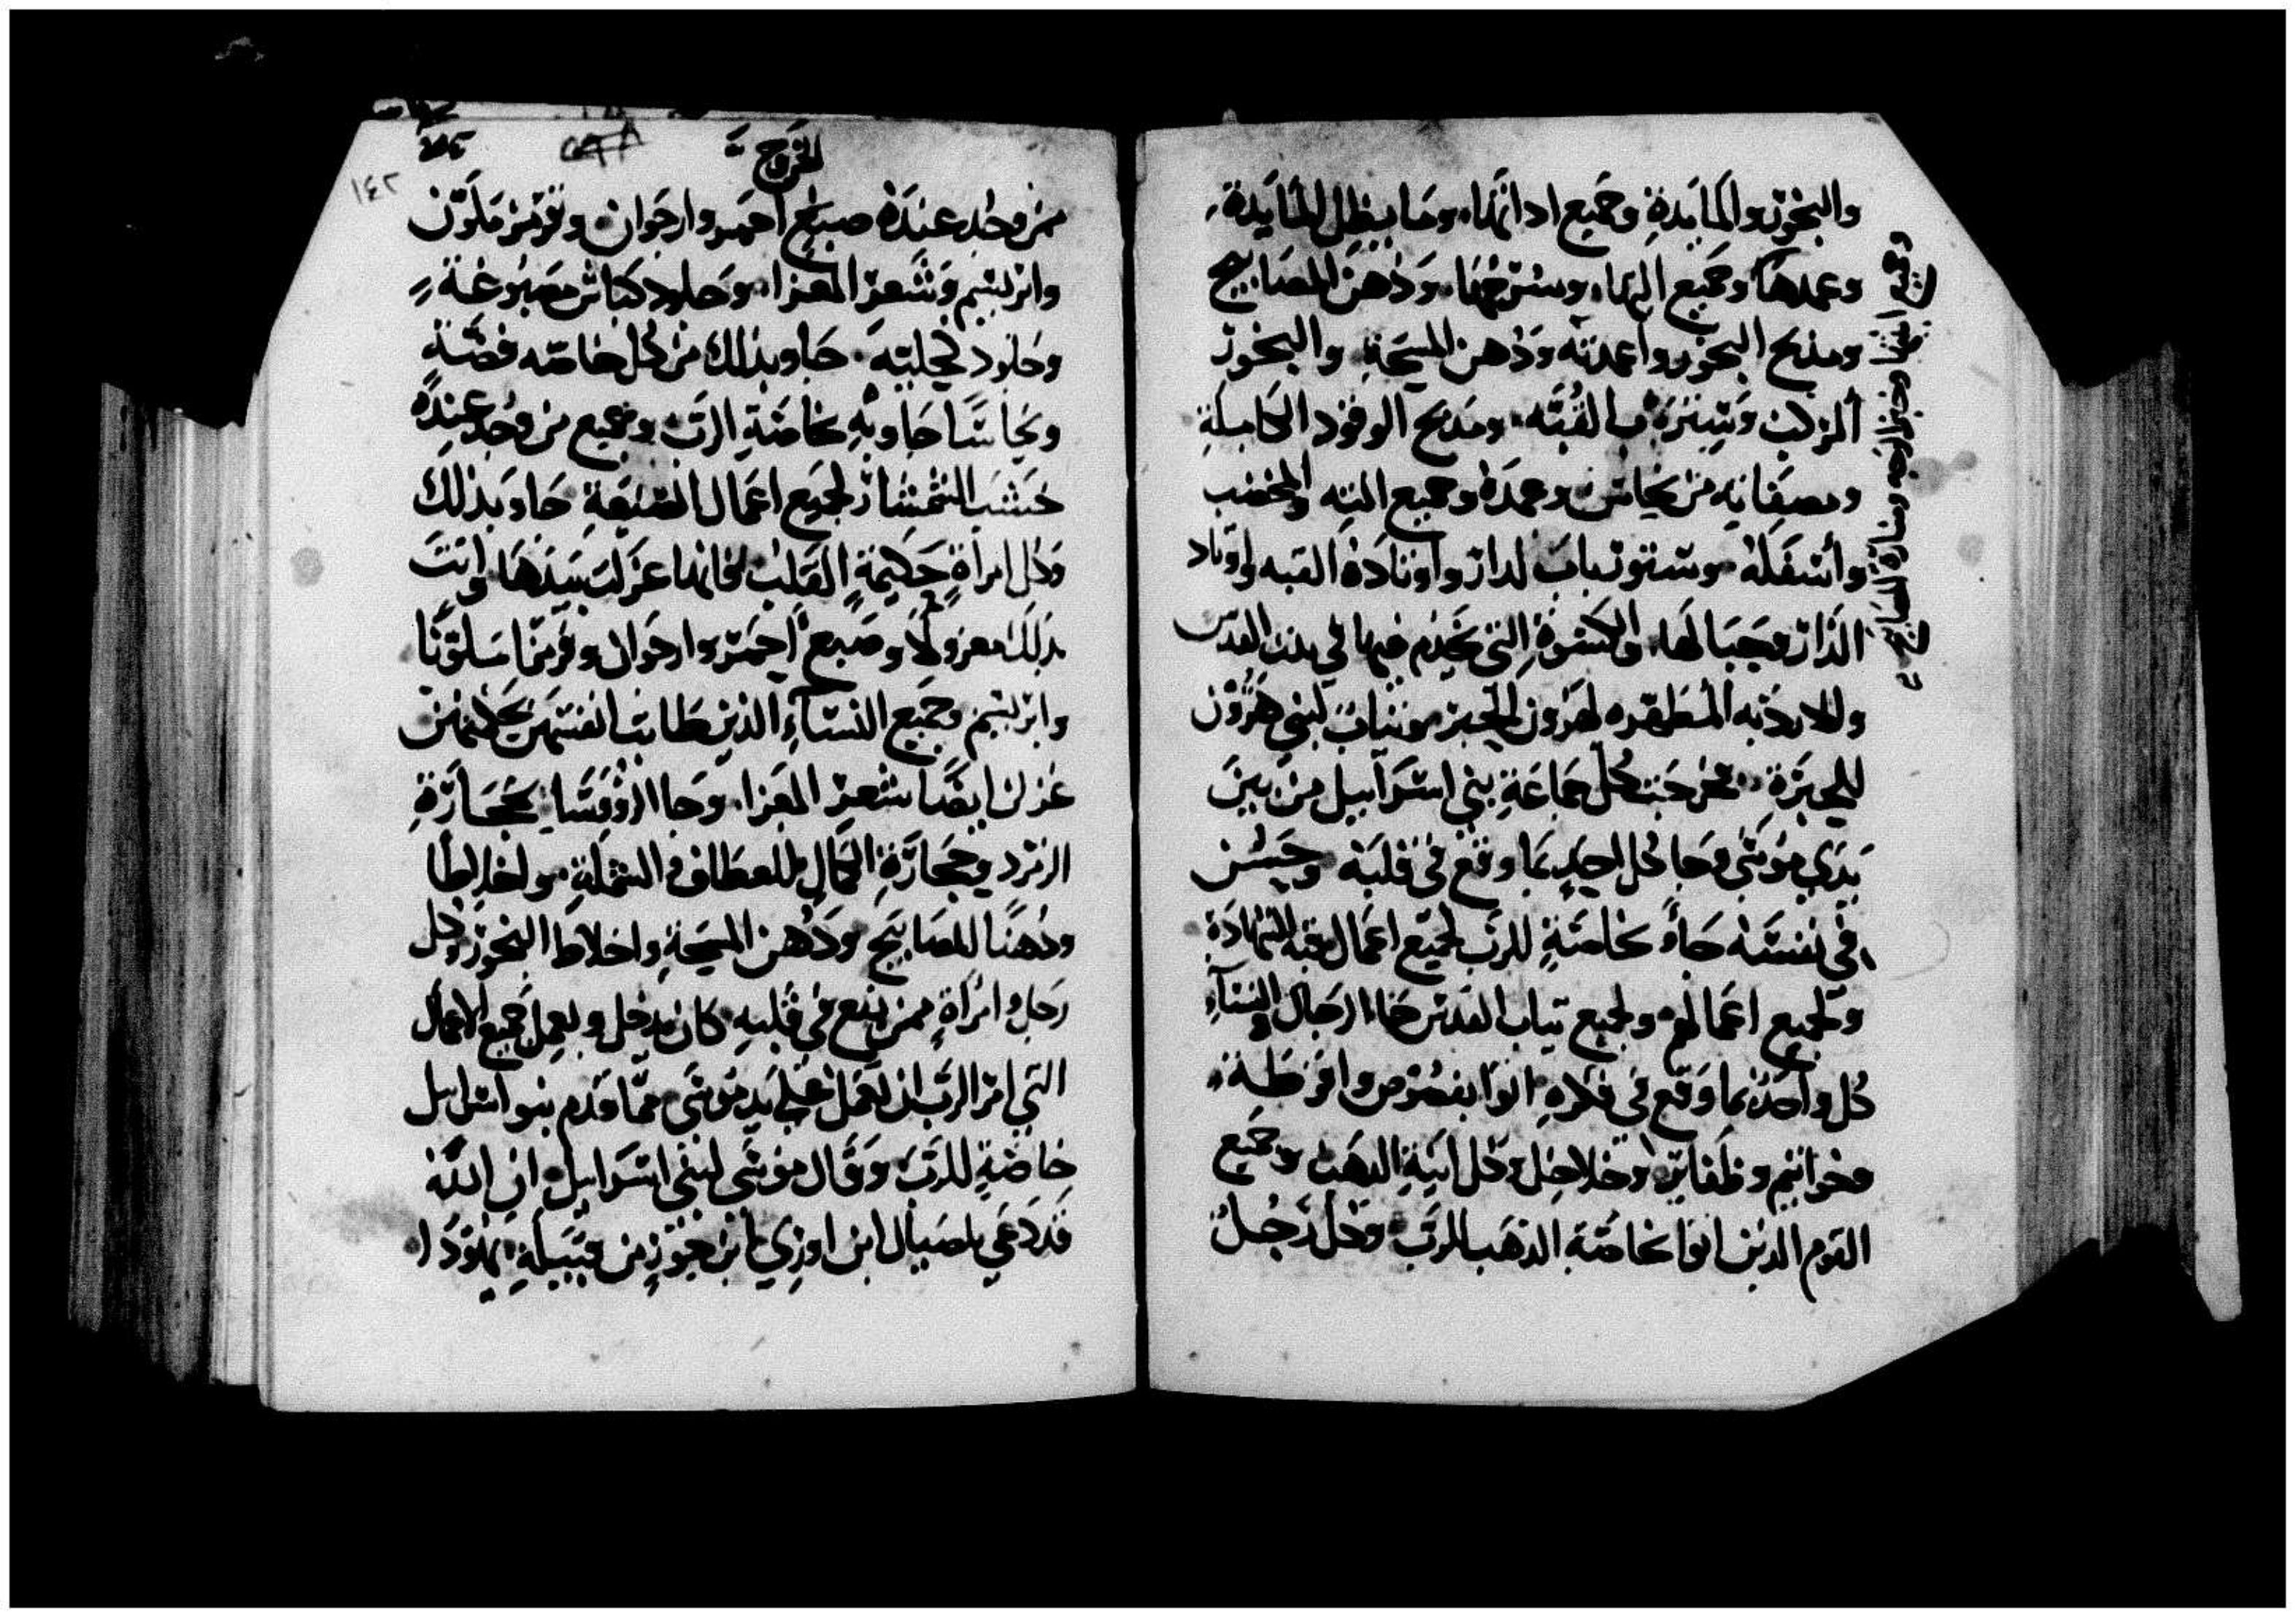 والبخور والمايدة وجميع اداتها. وما يظلل المايدة.
وعمدها وجميع التها. وسرجها. ودهن المصابيح
ومذبح البخور واعمدته ودهن المسحة والبخور
المركب وستره باب القبه. ومذبح الوقود الكاملة
ومصفاته من نحاس وعمده وجميع انيته والمخضب
واسفله وستور باب الدار واوتاده القبه واوتاد
الدار وحبالها. والكسوة التي يخدم فيها في بيت القدس
والارديه المطهره لهرون الحبر وثياب لبني هرون
للحبرة. فخرجت كل جماعة بني اسراييل من بين
يدي موسى وجا كل احد بما وقع في قلبه وحسن
في نفسه جاو بخاصة للرب لجميع اعمال قبة الشهادة
ولجميع اعمالهم ولجميع ثياب القدس جاا الرجال والنساء
كل واحد بما وقع في فكره اتوا بفصوص واقرطة.
وخواتيم وظفاير وخلاخل وكل انية الذهب وجميع
القوم الذين اتوا بخاصة الذهب للرب وكل رجل
وجميع انيتها وخبز الوجه ومنارة المصابيح
الخروج
١٤٢
ممن وجد عنده صبغ احمر وارجوان وقرمز ملون
وابريسم وشعر المعزا. وجلود كباش مصبوغة
وجلود كحلية. جاو بذلك من كل خاصته فضة
ونحاسا جاو به خاصة الرب وجميع من وجد عنده
خشب الشمشار لجميع اعمال الصنعة جاو بذلك
وكل امراة حكيمة القلب فانها غزلت بيدها واتت
بذلك مغزولا وصبغ احمر وارجوان وقرمزا ملونا
وابريسم وجميع النساء الذين طابت انفسهن بحكمتهن
غزلن ايضا شعر المعزا. وجا الروسا بحجارة
الزمرد وحجارة الكمال للعطاف والشملة. واخلاطا
ودهنا للمصابيح ودهن المسحة واخلاط البخور وكل
رجل وامراة ممن يقع في قلبه كان يدخل ويعمل جميع الاعمال
التي امر الرب ان تعمل على يد موسى مما قدم بنو اسراييل
خاصة للرب وقال موسى لبني اسراييل ان الله
قد دعي بلصيال ابن اوري ابن حور من قبيلة يهودا